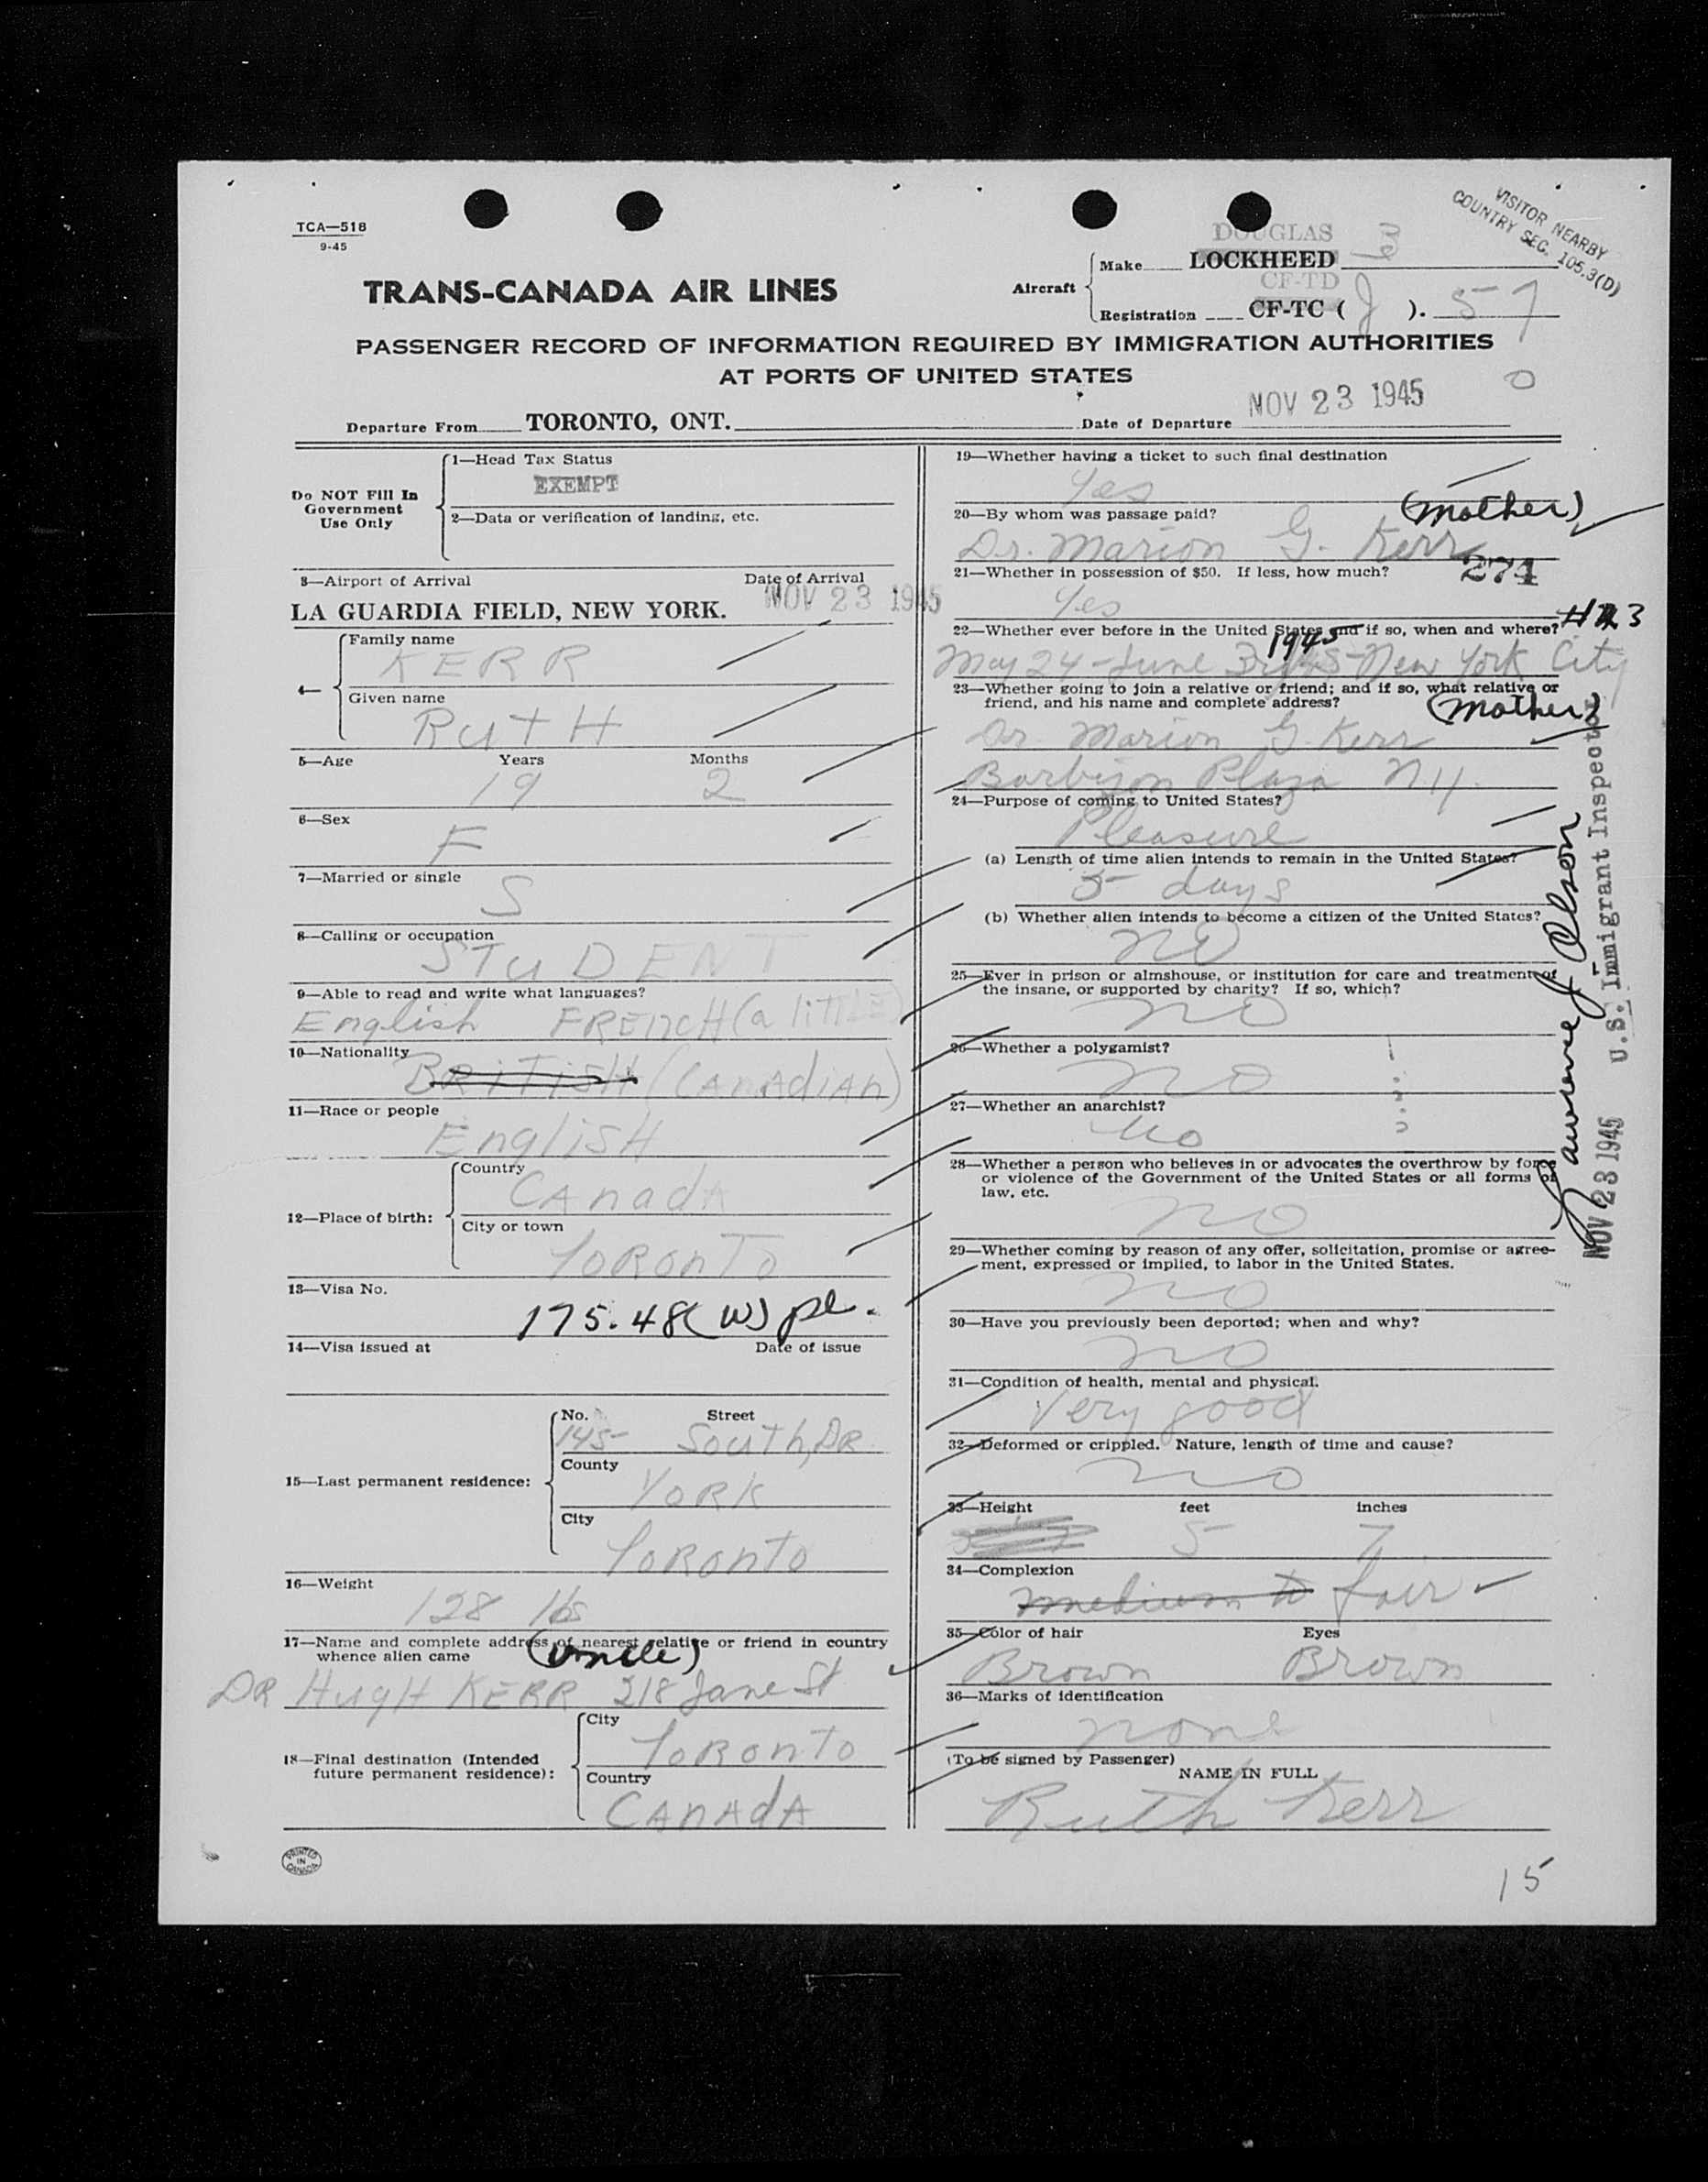 TCA—518
9-45
VISITOR NEARBY
COUNTRY SEC. 105.3(D)
DOUGLAS
Aircraft
Make LOCKHEED
CF-TD
Registration CF-TC ( J ). 57
TRANS-CANADA AIR LINES
PASSENGER RECORD OF INFORMATION REQUIRED BY IMMIGRATION AUTHORITIES
AT PORTS OF UNITED STATES
Departure From TORONTO, ONT. Date of Departure NOV 23 1945
Do NOT Fill In
Government
Use Only
1—Head Tax Status
EXEMPT
2—Data or verification of landing, etc.
3—Airport of Arrival Date of Arrival
LA GUARDIA FIELD, NEW YORK. NOV 23 1945
4—
Family name
KERR
Given name
RUTH
5—Age Years Months
19 2
6—Sex
F
7—Married or single
S
8—Calling or occupation
STUDENT
9—Able to read and write what languages?
English FRENCH (a little)
10—Nationality
BRITISH (CANADIAN)
11—Race or people
English
12—Place of birth:
Country
CANADA
City or town
TORONTO
13—Visa No.
175.48 (W) pl.
14—Visa issued at Date of issue
15—Last permanent residence:
No. Street
145 South, DR.
County
YORK
City
TORONTO
16—Weight
128 lbs
17—Name and complete address of nearest relative or friend in country
whence alien came (uncle)
DR HUGH KERR 218 Jane St
18—Final destination (Intended
future permanent residence):
City
TORONTO
Country
CANADA
PRINTED
IN
CANADA
19—Whether having a ticket to such final destination
Yes
20—By whom was passage paid? (Mother)
Dr. Marion G. Kerr
21—Whether in possession of $50. If less, how much? 274
Yes
22—Whether ever before in the United States and if so, when and where?
1945
May 24 - June 3rd/45 - New York City
23—Whether going to join a relative or friend; and if so, what relative or
friend, and his name and complete address? (Mother)
Dr. Marion G. Kerr
Barbizon Plaza N.Y.
24—Purpose of coming to United States?
Pleasure
(a) Length of time alien intends to remain in the United States?
5 days
(b) Whether alien intends to become a citizen of the United States?
no
25—Ever in prison or almshouse, or institution for care and treatment of
the insane, or supported by charity? If so, which?
no
26—Whether a polygamist?
no
27—Whether an anarchist?
no
28—Whether a person who believes in or advocates the overthrow by force
or violence of the Government of the United States or all forms of
law, etc.
no
29—Whether coming by reason of any offer, solicitation, promise or agree-
ment, expressed or implied, to labor in the United States.
no
30—Have you previously been deported; when and why?
no
31—Condition of health, mental and physical.
Very good
32—Deformed or crippled. Nature, length of time and cause?
no
33—Height feet inches
5 7
34—Complexion
medium to fair
35—Color of hair Eyes
Brown Brown
36—Marks of identification
none
(To be signed by Passenger)
NAME IN FULL
Ruth Kerr
15
Lawrence J Olson
U.S. Immigrant Inspector
NOV 23 1945